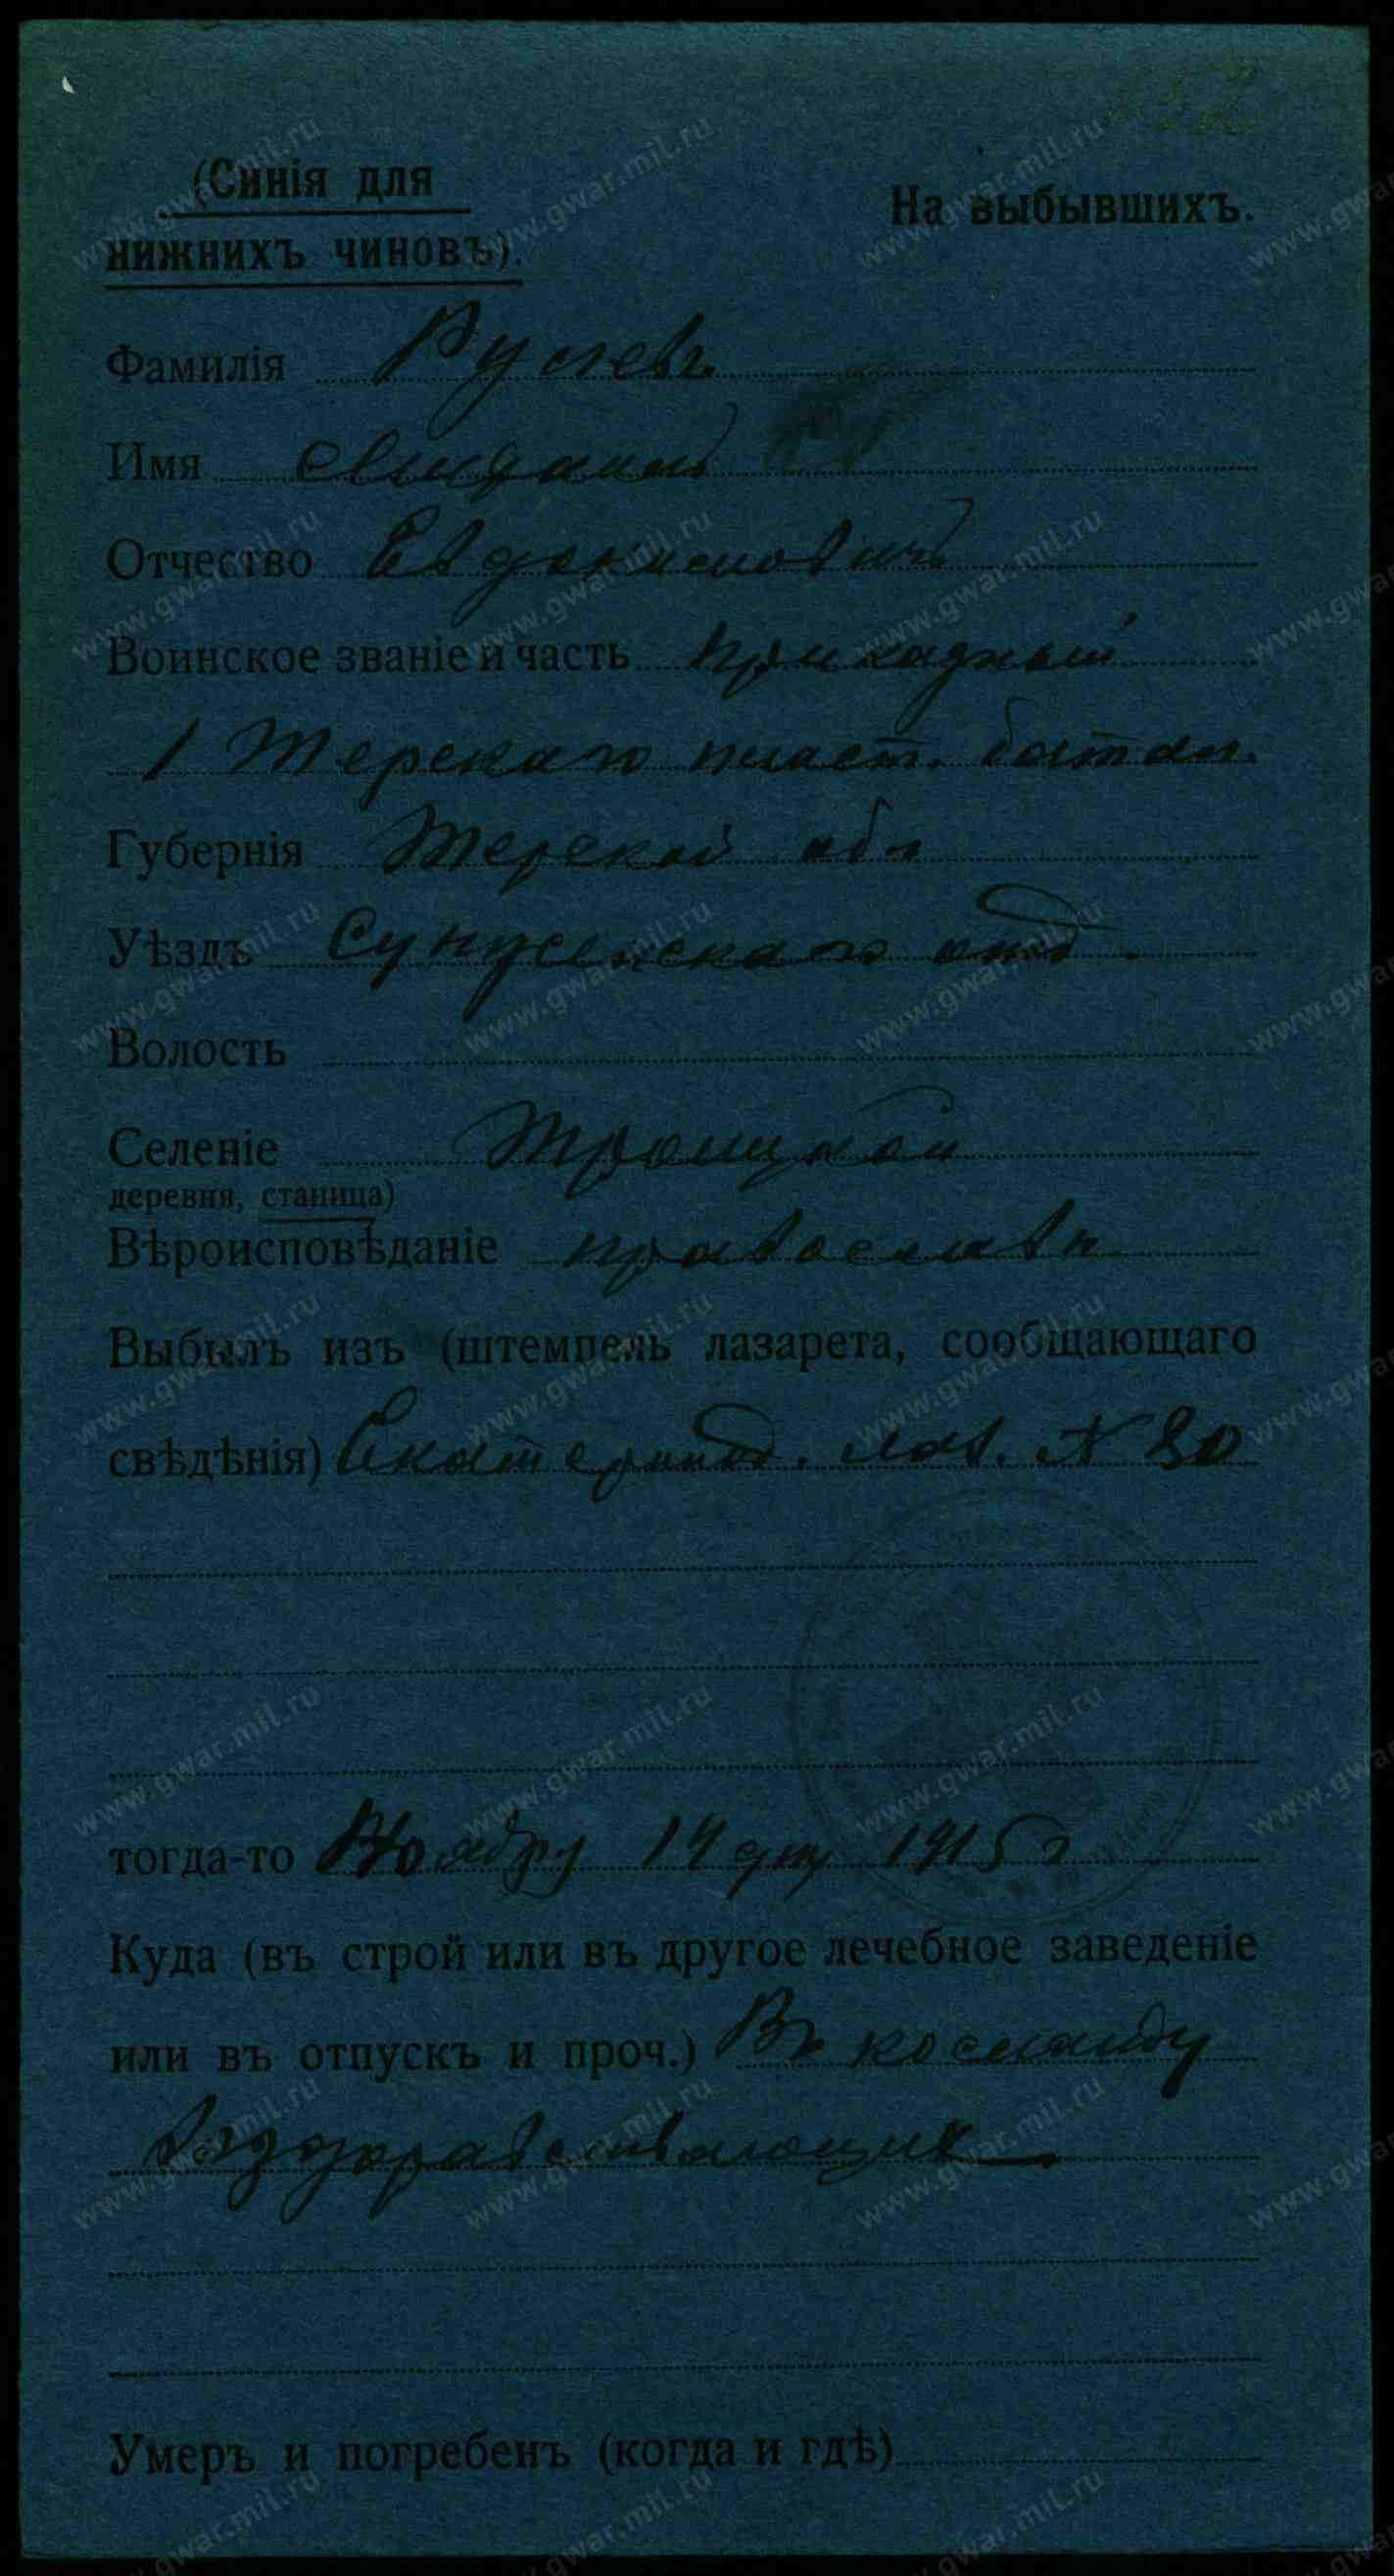 (Синія для
нижнихъ чиновъ).
На выбывшихъ.
Фамилія Руневъ
Имя
Отчество Евдокимовичъ
Воинское званіе и часть Приказный
1 Терскаго пласт. батал.
Губернія Терской обл
Уѣздъ Сунженскаго отд.
Волость
Селеніе Троицкой
деревня, станица)
Вѣроисповѣданіе православн
Выбылъ изъ (штемпель лазарета, сообщающаго
свѣдѣнія) Екатеринод. лаз. № 30
тогда-то Ноября 14 дня 1915 г
Куда (въ строй или въ другое лечебное заведеніе
или въ отпускъ и проч.) Въ команду
выздоравливающих
Умеръ и погребенъ (когда и гдѣ)
www.gwar.mil.ru